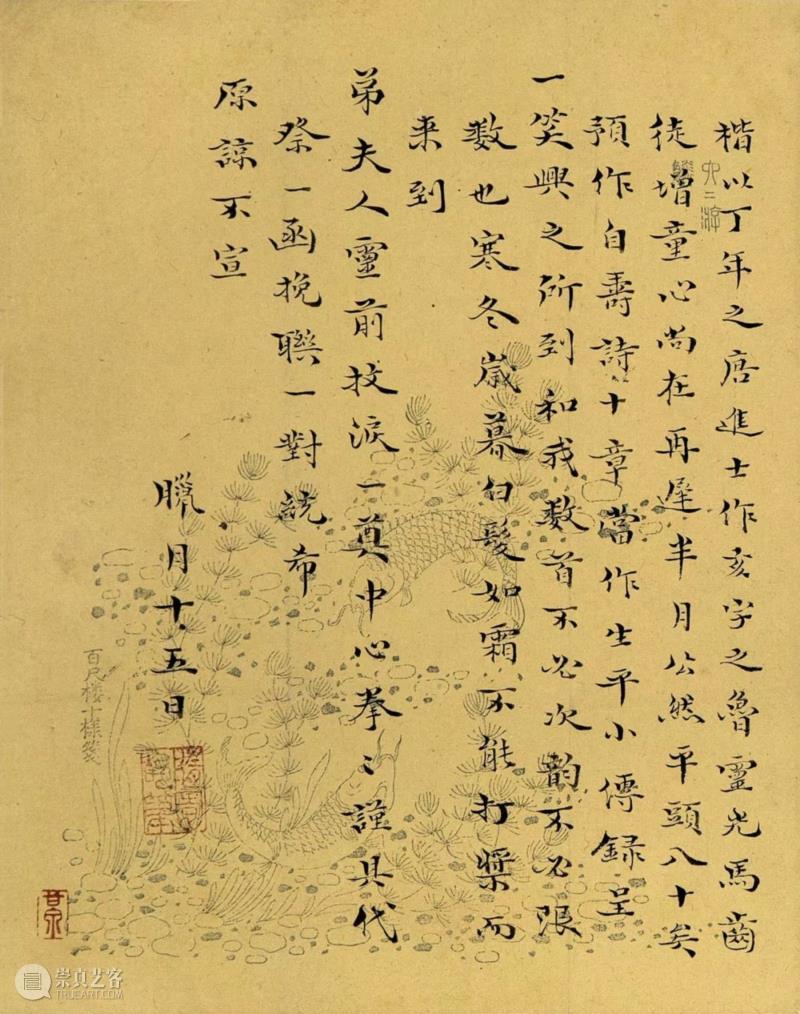 楷以丁年之唐進士作亥字之魯靈光馬齒
徒增童心尚在再遲半月公然平頭八十矣
預作自壽詩十章當作生平小傳錄呈
一笑興之所到和我数首不必次韵不必限
数也寒冬嵗暮白髮如霜不能打槳而
来到
弟夫人靈前抆淚一奠中心拳〻謹具代
祭一函挽聯一對統希
原諒不宣
臘月十五日
百尺楼十樣箋
崇真艺客
TRUEART.COM